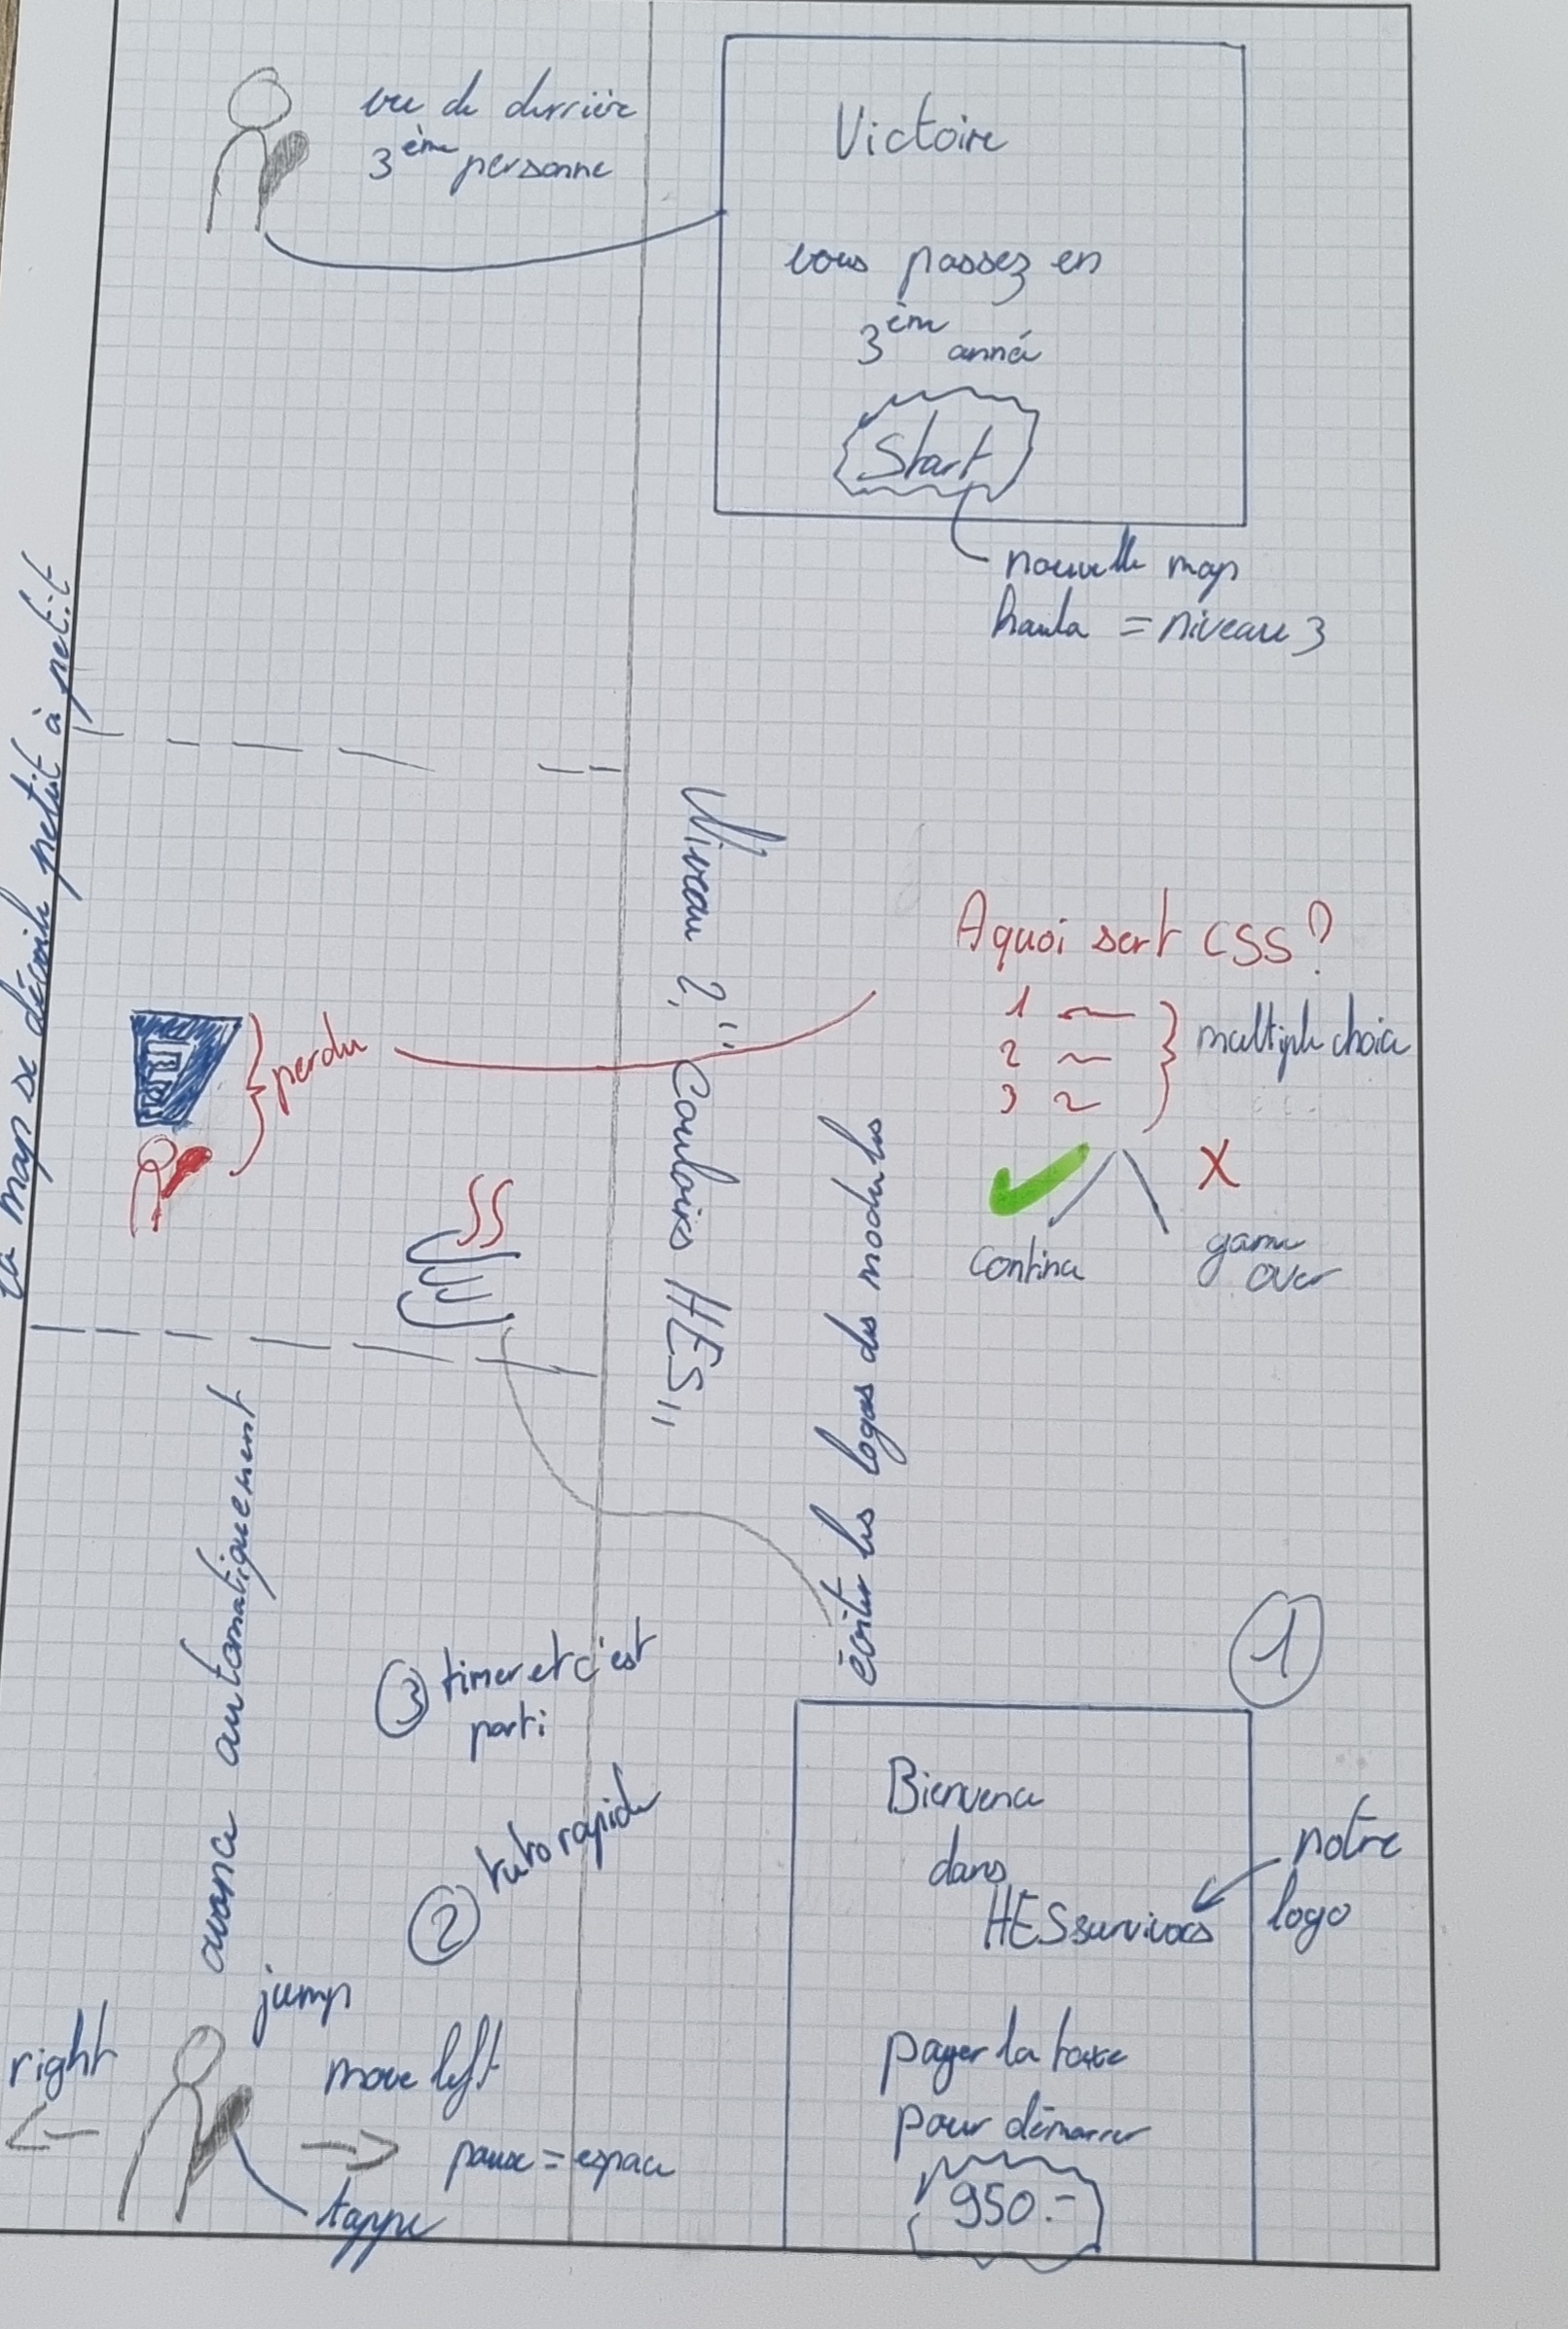 vue de derrière
3ème personne
Victoire
vous passez en
3ème année
Start
nouvelle map
= niveau 3
la map se décoile petit à petit
Niveau 2 "Couloirs HES"
A quoi sert CSS?
1
2
3
multiple choice
perdu
continue
game
over
éviter les logos des modules
avance automatiquement
3 timer et c'est
parti
2 tuto rapide
1
Bienvenue
dans
HESsurvivors
notre
logo
payer la taxe
pour démarrer
950.-
jump
right
move left
pause = espace
tappe